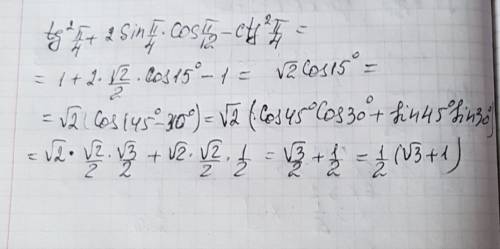 tg²π/4 + 2 sin π/4 · cos π/12 − ctg²π/4 =
= 1 + 2 · √2/2 · cos 15° − 1 = √2 cos 15° =
= √2 (cos(45° − 30°) = √2 (cos 45° cos 30° + sin 45° sin 30°)
= √2 · √2/2 · √3/2 + √2 · √2/2 · 1/2 = √3/2 + 1/2 = 1/2 (√3 + 1)